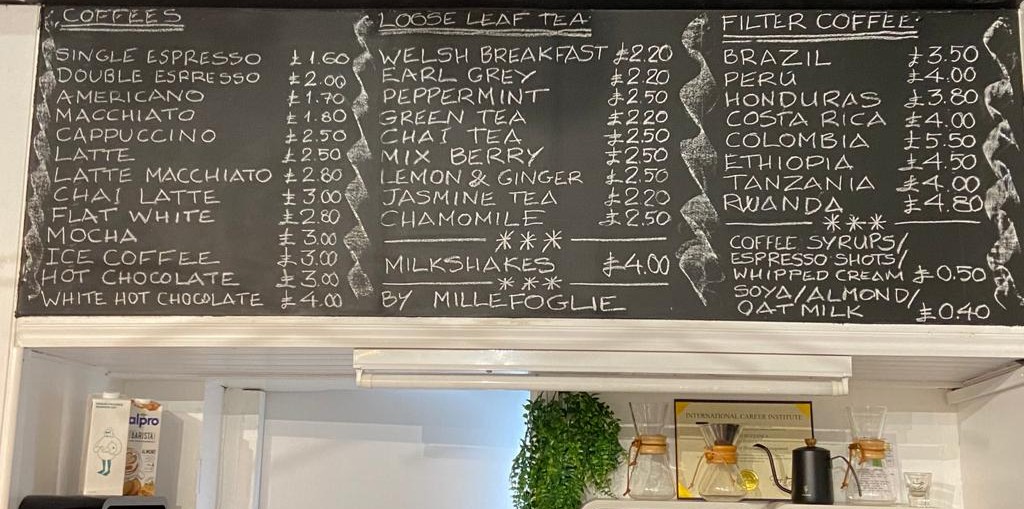 COFFEES
SINGLE ESPRESSO £1.60
DOUBLE ESPRESSO £2.00
AMERICANO £1.70
MACCHIATO £1.80
CAPPUCCINO £2.50
LATTE £2.50
LATTE MACCHIATO £2.80
CHAI LATTE £3.00
FLAT WHITE £2.80
MOCHA £3.00
ICE COFFEE £3.00
HOT CHOCOLATE £3.00
WHITE HOT CHOCOLATE £4.00
LOOSE LEAF TEA
WELSH BREAKFAST £2.20
EARL GREY £2.20
PEPPERMINT £2.50
GREEN TEA £2.20
CHAI TEA £2.50
MIX BERRY £2.50
LEMON & GINGER £2.50
JASMINE TEA £2.20
CHAMOMILE £2.50
***
MILKSHAKES £4.00
***
BY MILLEFOGLIE
FILTER COFFEE
BRAZIL £3.50
PERU £4.00
HONDURAS £3.80
COSTA RICA £4.00
COLOMBIA £5.50
ETHIOPIA £4.50
TANZANIA £4.00
RWANDA £4.80
***
COFFEE SYRUPS/
ESPRESSO SHOTS/
WHIPPED CREAM £0.50
SOYA/ALMOND/
OAT MILK £0.40
alpro
BARISTA
INTERNATIONAL CAREER INSTITUTE